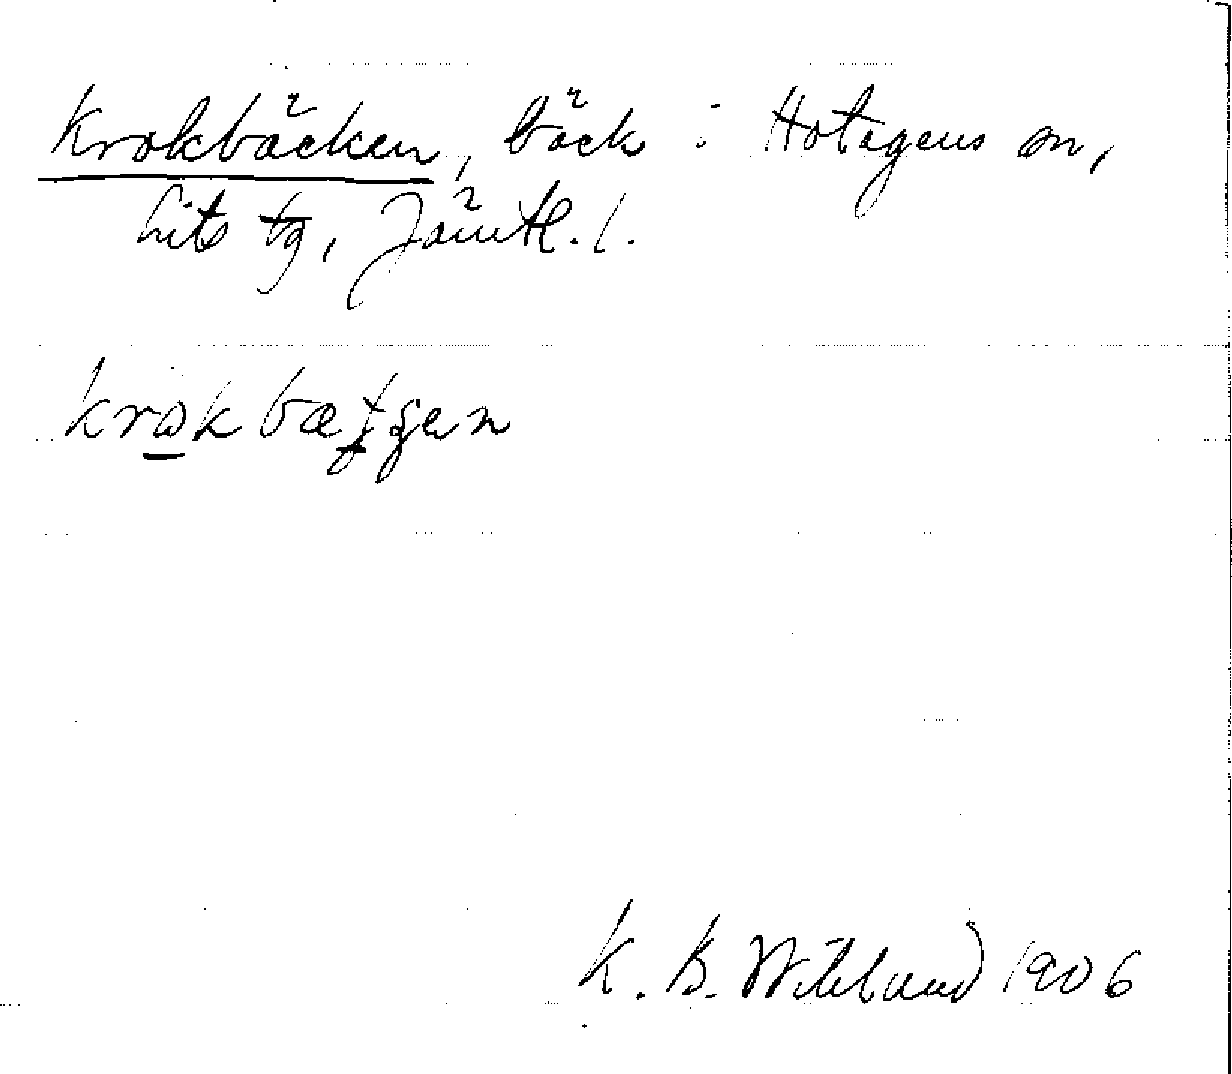 Krokbäcken, bäck i Hotagens sn,
Lits tg, Jämtl. l.
krokbæţşen
K. B. Wiklund 1906